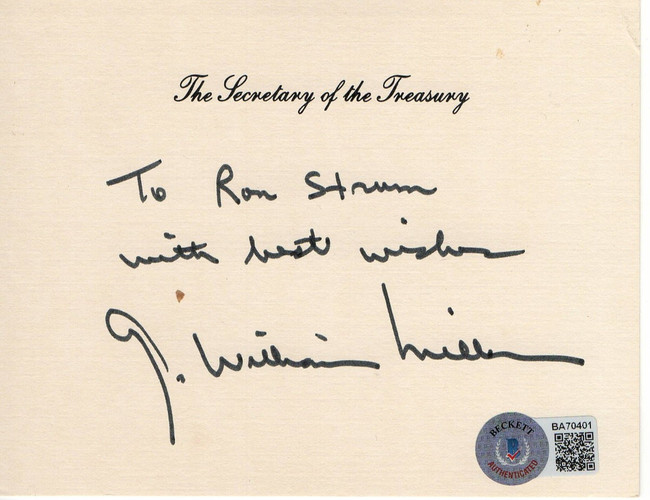 The Secretary of the Treasury
To Ron Strum
with best wishes
G. William Miller
BECKETT
B
AUTHENTICATED
BA70401